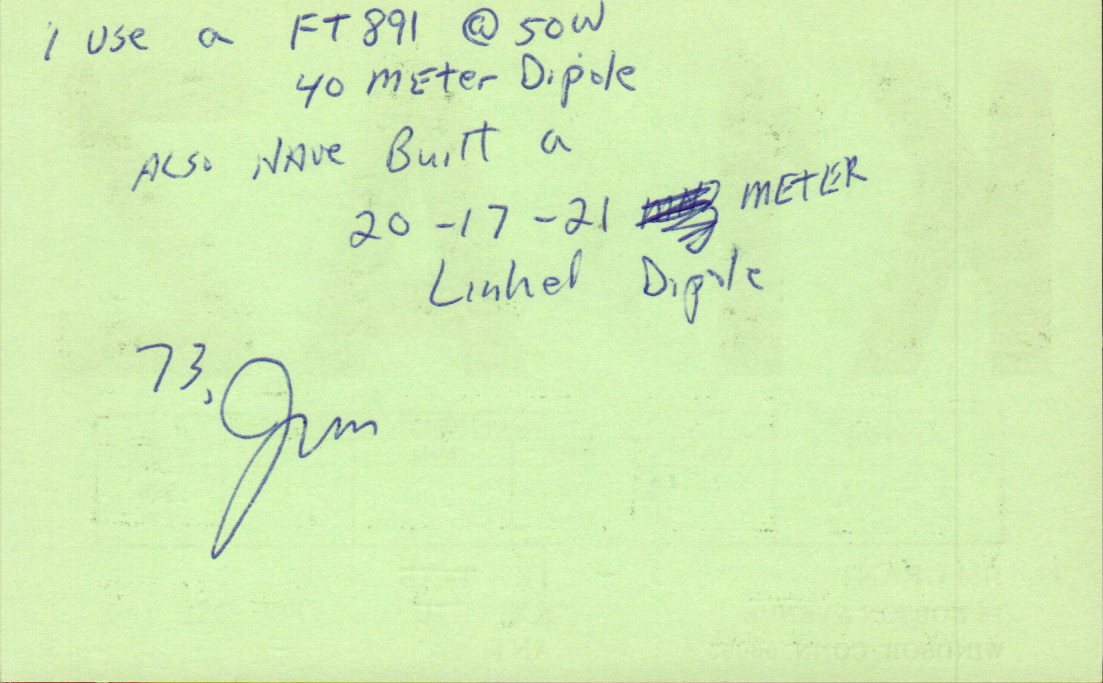 I use a FT891 @ 50W
40 Meter Dipole
Also Have Built a
20-17-21 METER
Linked Dipole
73, Jim